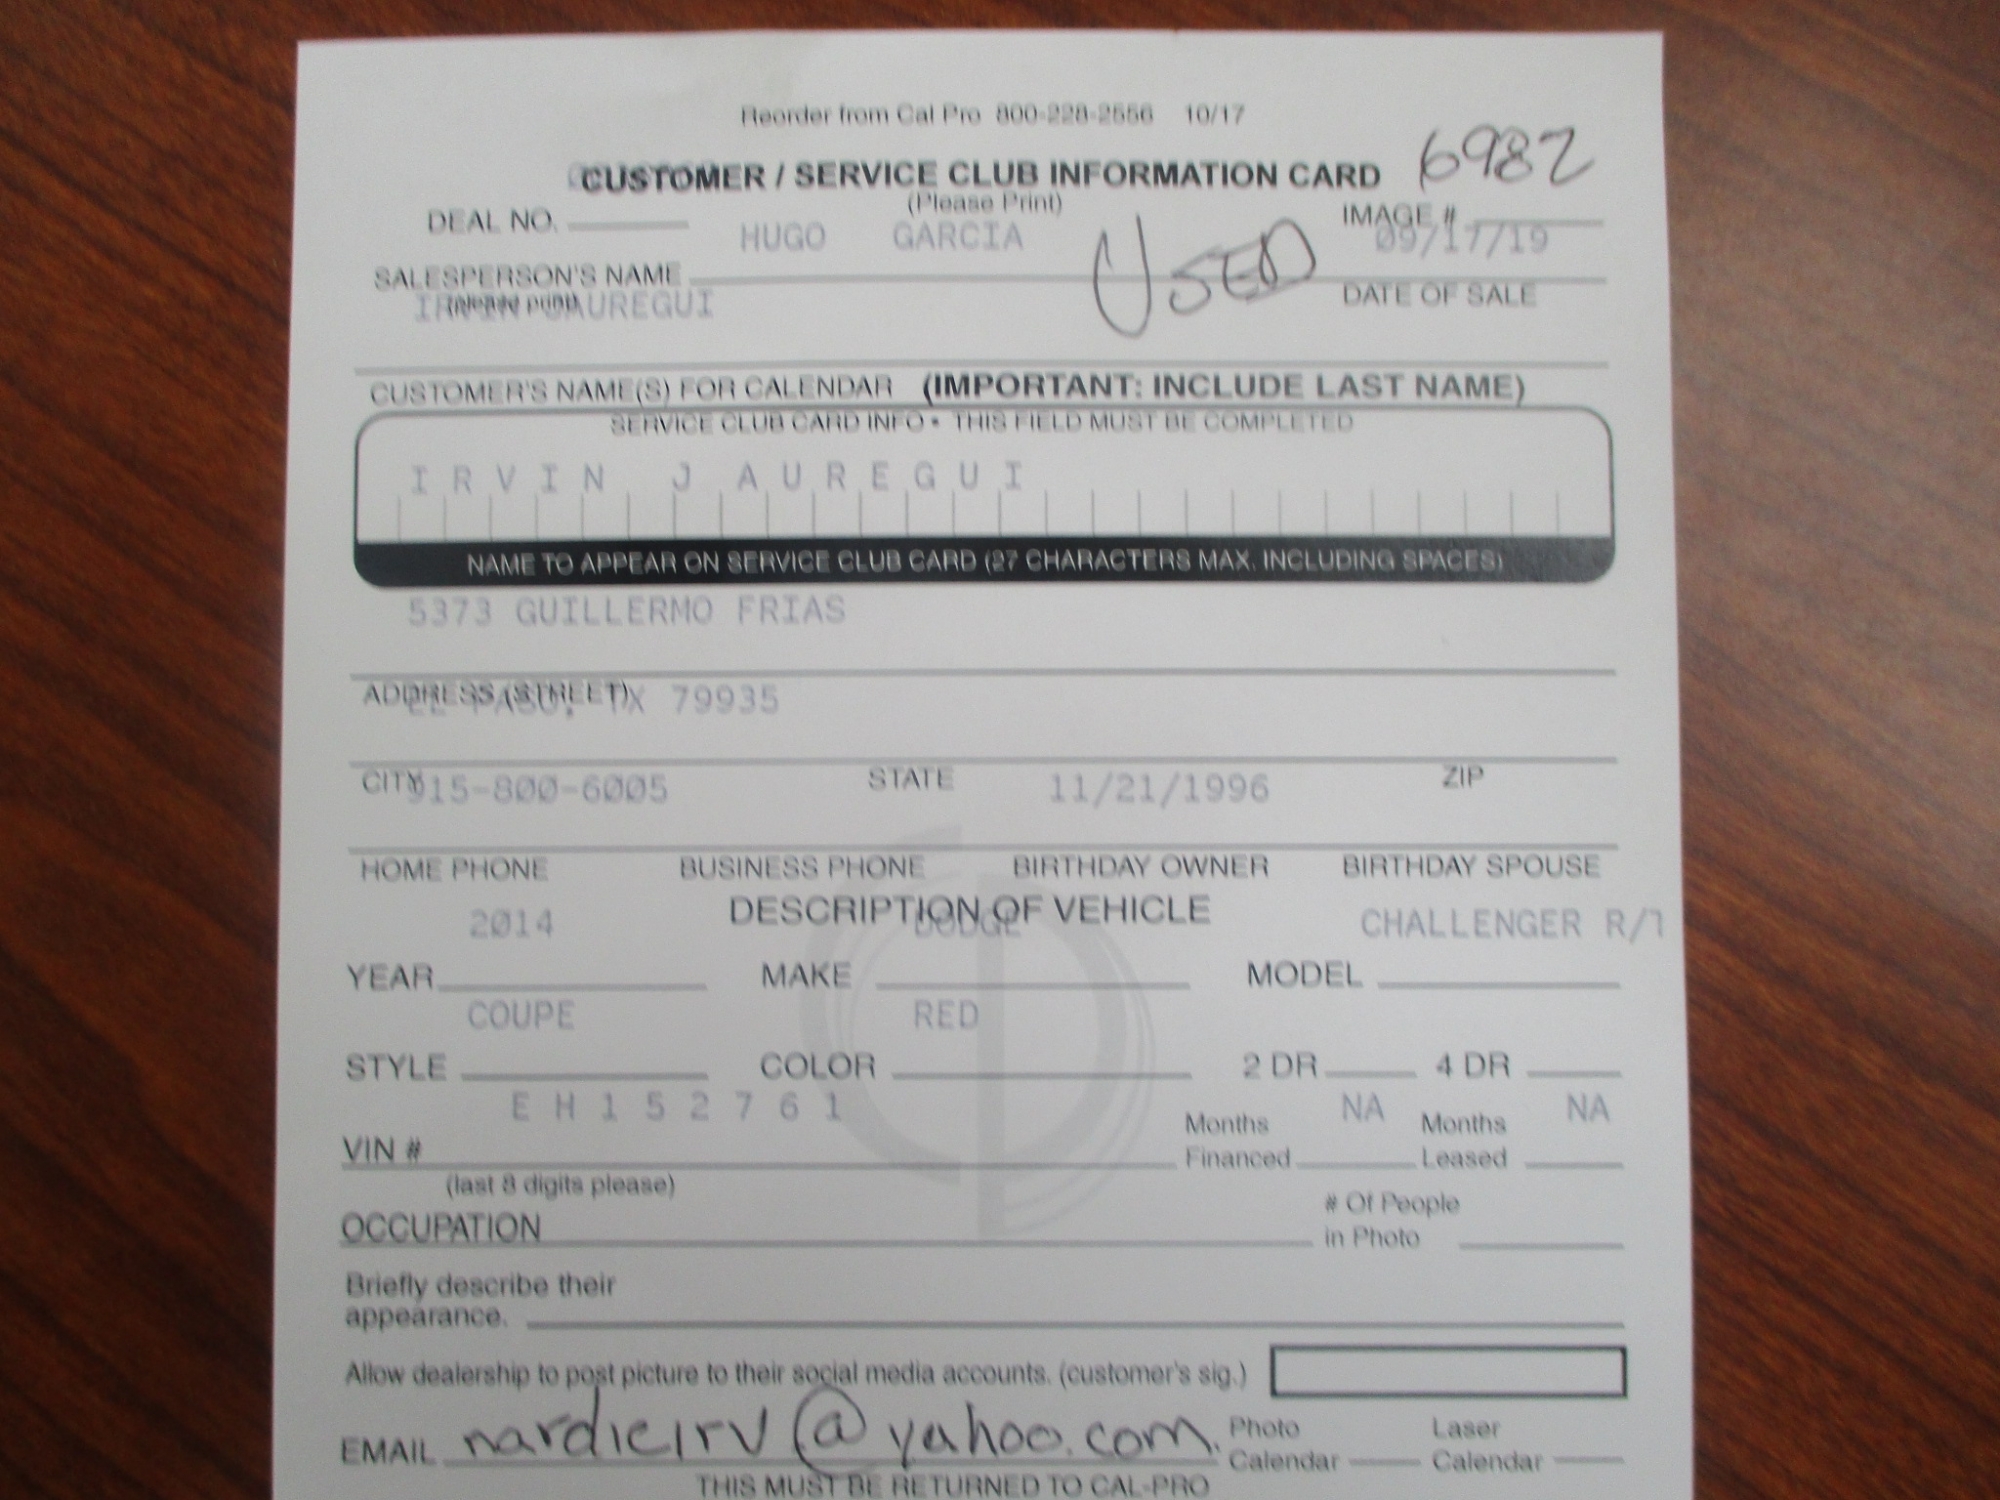 Reorder from Cal Pro 800-228-2556 10/17
CUSTOMER / SERVICE CLUB INFORMATION CARD 6982
(Please Print)
DEAL NO. IMAGE #
HUGO GARCIA USED 09/17/19
SALESPERSON'S NAME DATE OF SALE
(please print)
IRVIN JAUREGUI
CUSTOMER'S NAME(S) FOR CALENDAR (IMPORTANT: INCLUDE LAST NAME)
SERVICE CLUB CARD INFO • THIS FIELD MUST BE COMPLETED
IRVIN JAUREGUI
NAME TO APPEAR ON SERVICE CLUB CARD (27 CHARACTERS MAX. INCLUDING SPACES)
5373 GUILLERMO FRIAS
ADDRESS (STREET)
EL PASO, TX 79935
CITY STATE ZIP
915-800-6005 11/21/1996
HOME PHONE BUSINESS PHONE BIRTHDAY OWNER BIRTHDAY SPOUSE
DESCRIPTION OF VEHICLE
2014 DODGE CHALLENGER R/T
YEAR MAKE MODEL
COUPE RED
STYLE COLOR 2 DR 4 DR
EH152761 NA NA
VIN # Months Financed Months Leased
(last 8 digits please)
OCCUPATION # Of People in Photo
Briefly describe their
appearance.
Allow dealership to post picture to their social media accounts. (customer's sig.)
EMAIL nardieirv@yahoo.com. Photo Calendar Laser Calendar
THIS MUST BE RETURNED TO CAL-PRO